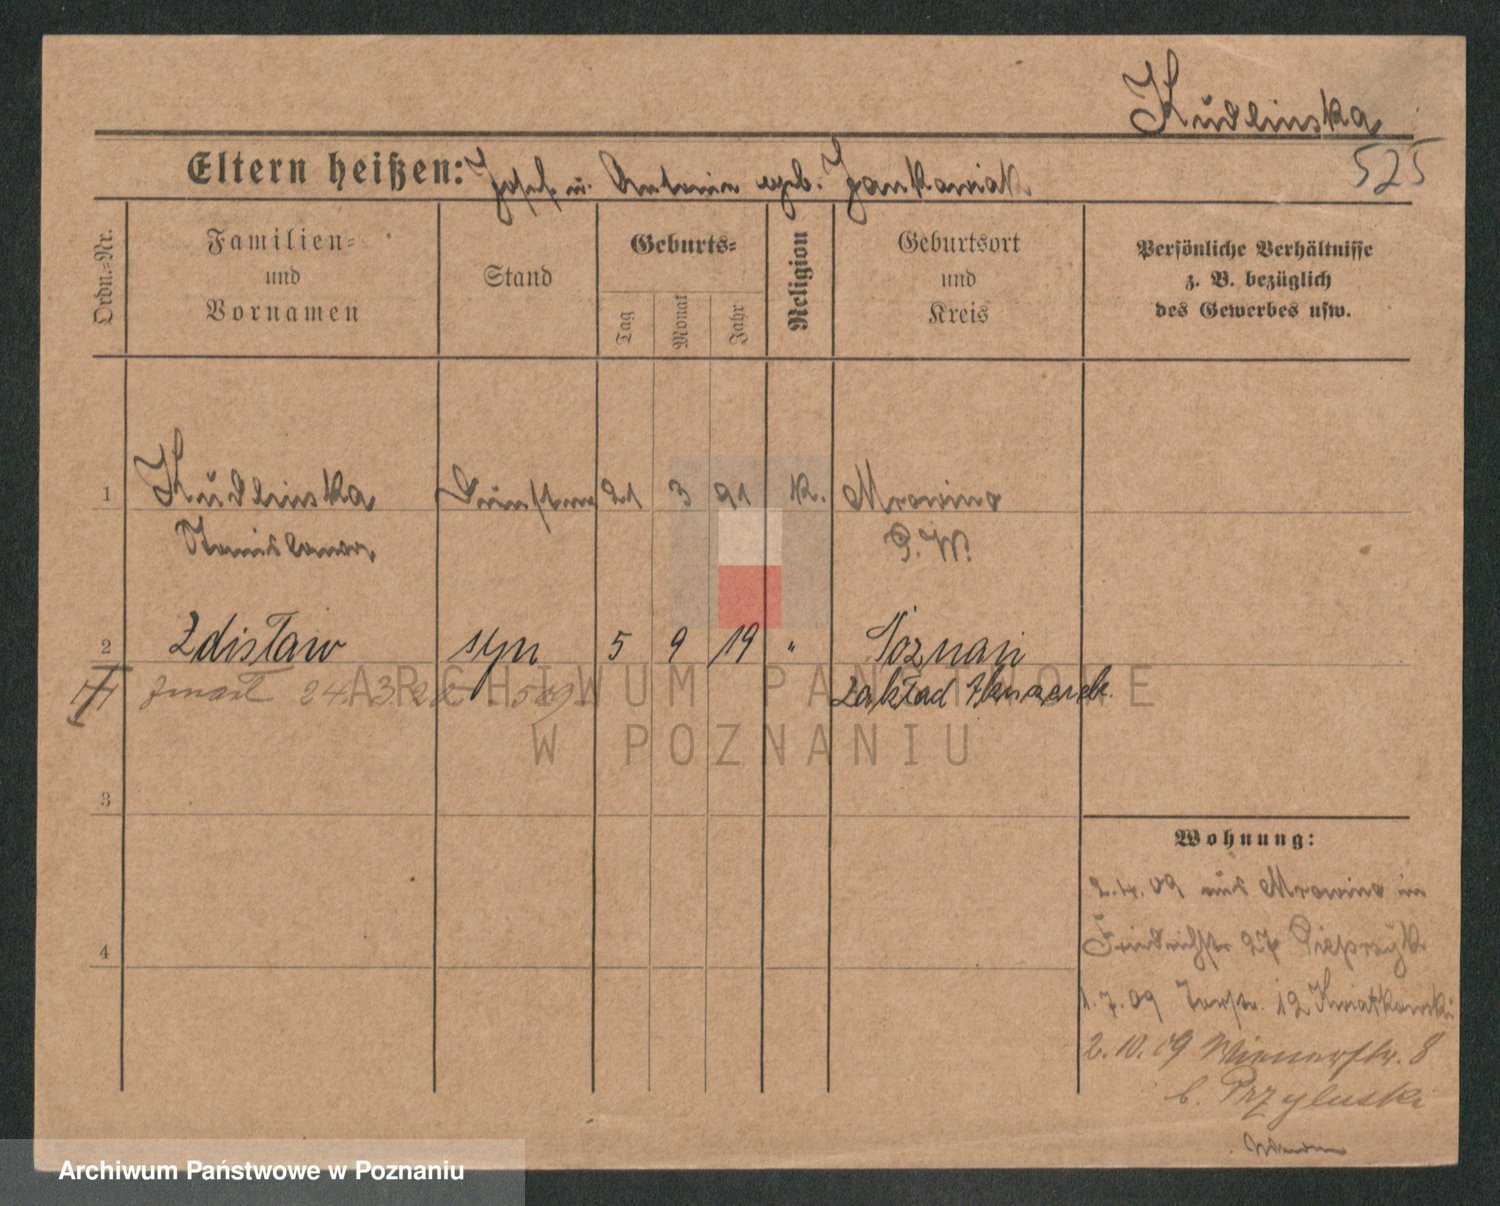 Kudlinska
525
Eltern heißen: Josef u. Antonie geb. Jankowiak
Ordn.-Nr.
Familien-
und
Vornamen
Stand
Geburts-
Tag
Monat
Jahr
Religion
Geburtsort
und
Kreis
Persönliche Verhältnisse
z. B. bezüglich
des Gewerbes usw.
1 Kudlinska 21 3 91 k. Mrowino
Stanislawa P. W.
2 Zdisław syn 5 9 19 " Poznań
zmarł 24.3.22 509 Zakład
3
Wohnung:
2.4.09 aus Mrowino in
4
Friedrichstr 27 Pieprzyk
1.7.09 Torstr. 12 Kwiatkowski
2.10.09 Wienerstr. 8
b. Przyluski
ARCHIWUM PAŃSTWOWE
W POZNANIU
Archiwum Państwowe w Poznaniu